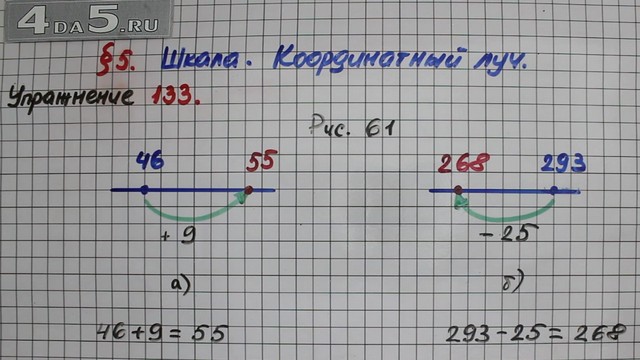 4DA5.RU
§5. Шкала. Координатный луч.
Упражнение 133.
Рис. 61
46 55 268 293
+ 9 - 25
а) б)
46 + 9 = 55 293 - 25 = 268